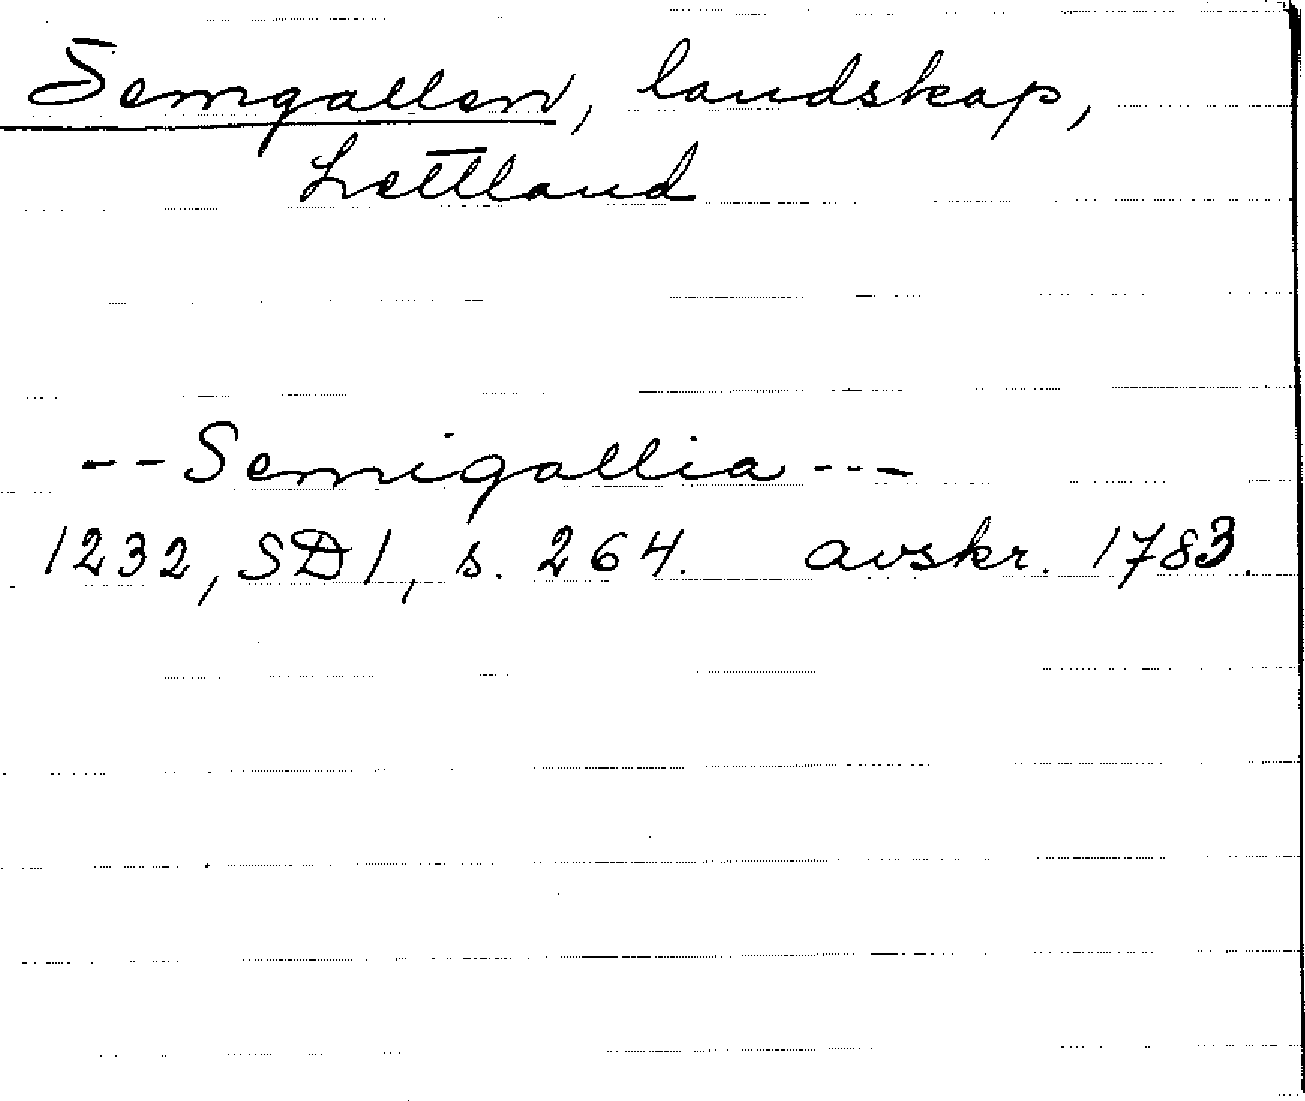 Semgallen, landskap,
Lettland
--Semigallia---
1232, SD1, s. 264. avskr. 1783.